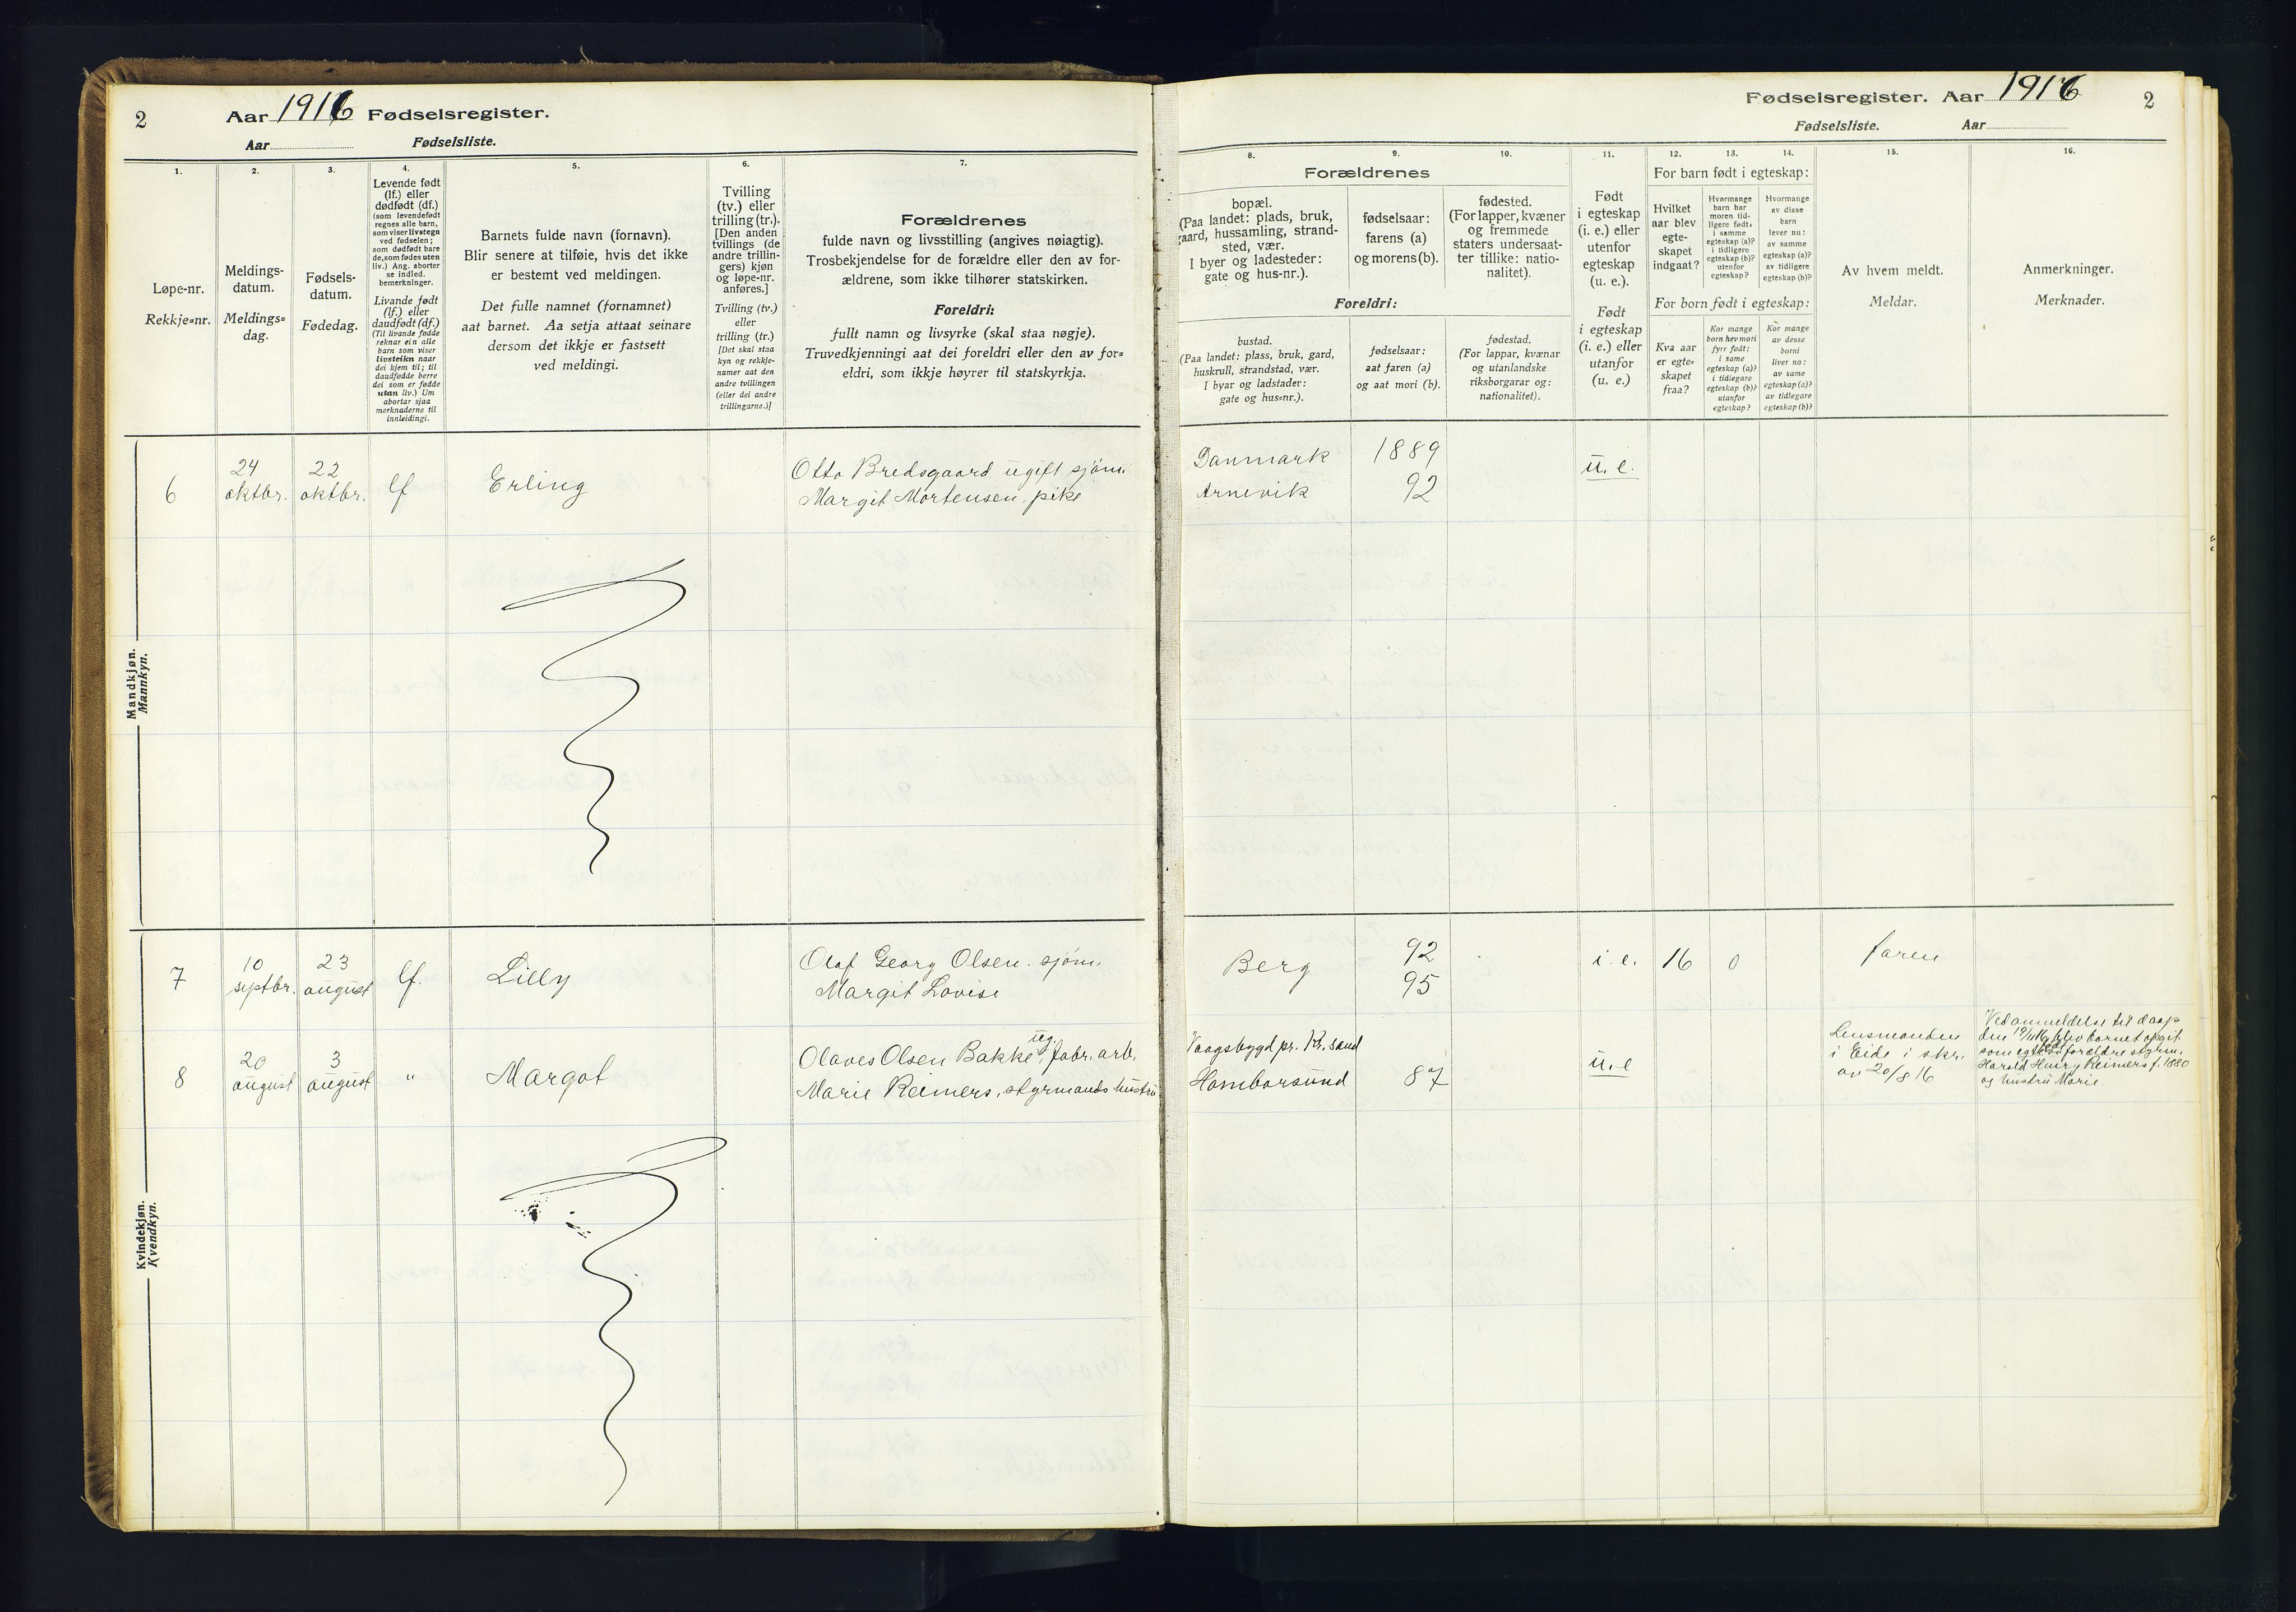 2 Aar 1916 Fødselsregister.
Aar Fødselsliste.
Fødselsregister. Aar 1916 2
Fødselsliste. Aar
1.
Løpe-nr.
Rekkje=nr.
2.
Meldings-
datum.
Meldings=
dag.
3.
Fødsels-
datum.
Fødedag.
4.
Levende født
(lf.) eller
dødfødt (df.)
(som levendefødt
regnes alle barn,
som viser livstegn
ved fødselen;
som dødfødt bare
de, som fødes uten
liv.) Ang. aborter
se indled.
bemerkninger.
Livande født
(lf.) eller
daudfødt (df.)
(Til livande fødde
reknar ein alle
barn som viser
livsteikn naar
dei kjem til; til
daudfødde berre
dei som er fødde
utan liv.) Um
abortar sjaa
merknaderne til
innleidingi.
5.
Barnets fulde navn (fornavn).
Blir senere at tilføie, hvis det ikke
er bestemt ved meldingen.
Det fulle namnet (fornamnet)
aat barnet. Aa setja attaat seinare
dersom det ikkje er fastsett
ved meldingi.
6.
Tvilling
(tv.) eller
trilling (tr.).
[Den anden
tvillings (de
andre trillin-
gers) kjøn
og løpe-nr.
anføres.]
Tvilling (tv.)
eller
trilling (tr.)
[Det skal staa
kyn og rekkje-
numer aat den
andre tvillingen
(eller dei andre
trillingarne.)]
7.
Forældrenes
fulde navn og livsstilling (angives nøiagtig).
Trosbekjendelse for de forældre eller den av for-
ældrene, som ikke tilhører statskirken.
Foreldri:
fullt namn og livsyrke (skal staa nøgje).
Truvedkjenningi aat dei foreldri eller den av for=
eldri, som ikkje høyrer til statskyrkja.
Forældrenes
8.
bopæl.
(Paa landet: plads, bruk,
gaard, hussamling, strand-
sted, vær.
I byer og ladesteder:
gate og hus-nr.).
9.
fødselsaar:
farens (a)
og morens (b).
10.
fødested.
(For lapper, kvæner
og fremmede
staters undersaat-
ter tillike: natio-
nalitet).
Foreldri:
bustad.
(Paa landet: plass, bruk, gard,
huskrull, strandstad, vær.
I byar og ladstader:
gate og hus=nr.).
fødselsaar:
aat faren (a)
og aat mori (b).
fødestad.
(For lappar, kvænar
og utanlandske
riksborgarar og:
nationalitet).
11.
Født
i egteskap
(i. e.) eller
utenfor
egteskap
(u. e.).
Født
i egteskap
(i. e.) eller
utanfor
(u. e.)
12. 13. 14.
For barn født i egteskap:
Hvilket
aar blev
egte-
skapet
indgaat?
Hvormange
barn har
moren tid-
ligere født:
i samme
egteskap (a)?
i tidligere
egteskap (b)?
utenfor
egteskap?
Hvormange
av disse
barn
lever nu:
av samme
egteskap (a)?
av tidligere
egteskap (b)?
For born født i egteskap:
Kva aar
er egte=
skapet
fraa?
Kor mange
born hev mori
fyrr født:
i same
egteskap (a)?
i tidlegare
egteskap (b)?
utanfor
egteskap?
Kor mange
av desse
borni
liver no:
av same
egteskap (a)?
av tidlegare
egteskap (b)?
15.
Av hvem meldt.
Meldar.
16.
Anmerkninger.
Merknader.
Mandkjøn.
Mannkyn.
6
24
oktbr.
22
oktbr.
lf
Erling
Otto Bredsgaard ugift sjøm.
Margit Mortensen, pike
Danmark 1889
Arnevik 92
u. e.
Kvindekjøn.
Kvendkyn.
7
10
septbr.
23
august
lf.
Lilly
Olaf Georg Olsen. sjøm.
Margit Lovise
Berg
92
95
i. e.
16
0
faren
8
20
august
3
august
"
Margot
Olaves Olsen Bakke, ug. fabr. arb.
Marie Reimers, styrmands hustru
Vaagsbygd pr. Kr.sand
Homborsund 87
u. e
Lensmanden
i Eide i skr.
av 20/8 16
Ved anmeldelse til daap
den 19/11 16 blev barnet opgit
som egtefødt forældre styrm.
Harald Henry Reimers f. 1880
og hustru Marie.